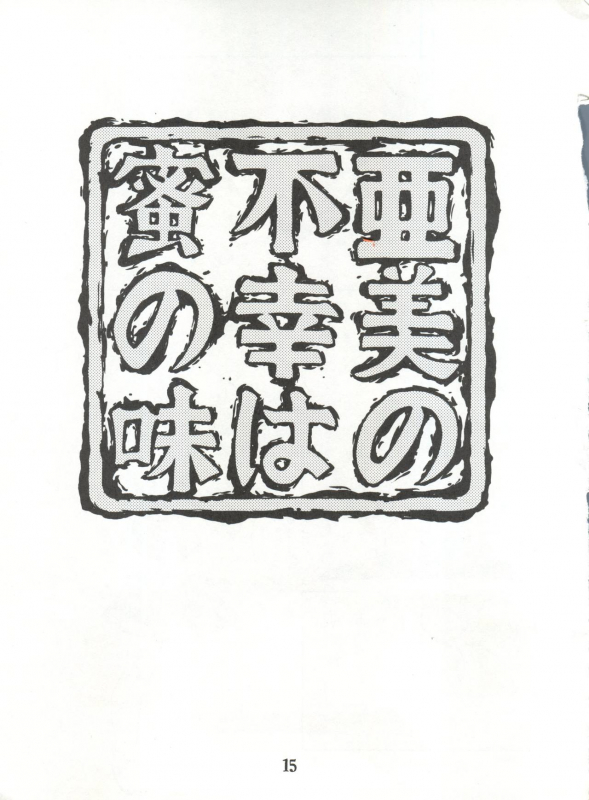 亜美の
不幸は
蜜の味
15